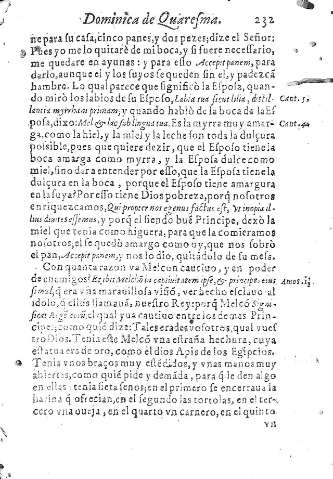 Dominica de Quaresma. 232
ne para su casa, cinco panes, y dos pezes; dize el Señor;
Pues yo me lo quitarè de mi boca, y si fuere necessario,
me quedare en ayunas: y para ello Accepit panem, para
darlo, aunque el y los suyos se queden sin el, y padezcã
hambre. Lo qual parece que significò la Esposa, quan-
do mirò los labios de su Esposo, Labia tua sicut lilia, disti-
lantia myrrham primam, y quando hablò de la boca de la Es-
Cant. 5.
posa, dixo: Mel & lac sub lingua tua. Es la myrra muy amar-
Cant. 4.
ga, como la miel, y la miel y la leche son toda la dulçura
possible, pues que quiere dezir, que el Esposo tiene la
boca amarga como myrra, y la Esposa dulce como
miel, sino dar a entender por esso, que la Esposa tiene la
dulçura en la boca, porque el Esposo tiene amargura
en la suya? Por esso tiene Dios pobreza, porq̃ nosotros
enriquezcamos, Qui propter nos egenus factus est, vt inopia il-
lius diuites essemus, y porq̃ el siendo buẽ Principe, dexò la
miel que tenia como higuera, para que la comieramos
nosotros, el se quedò amargo como oy, que nos sobrò
el pan, Accepit panem, y nos lo dio, quitãdolo de su mesa.
Con quanta razon va Melcon cautiuo, y en poder
de enemigos? Et ibit Melchõ in captiuitatem ipse, & principes eius
Amos. 1.
simul, q̃ era vña marauillosa visiõ, ver hecho esclauo al
idolo, q̃ ellos llamauã, nuestro Rey: porq̃ Melcõ
el qual yua cautiuo entre los demas Prin-
cipes; como quiẽ dize: Tales erades vosotros, qual vues-
tro Dios. Tenia este Melcõ vna estraña hechura, cuya
estatua era de oro, como el dios Apis de los Egipcios.
Tenia vnos braços muy estẽdidos, y vnas manos muy
abiertas, como quiẽ pide y demãda, para q̃ le den algo
en ellas: tenia siete senos; en el primero se encerraua la
harina q̃ ofrecian, en el segundo las tortolas, en el ter-
cero vna oueja, en el quarto vn carnero, en el quinto
vn